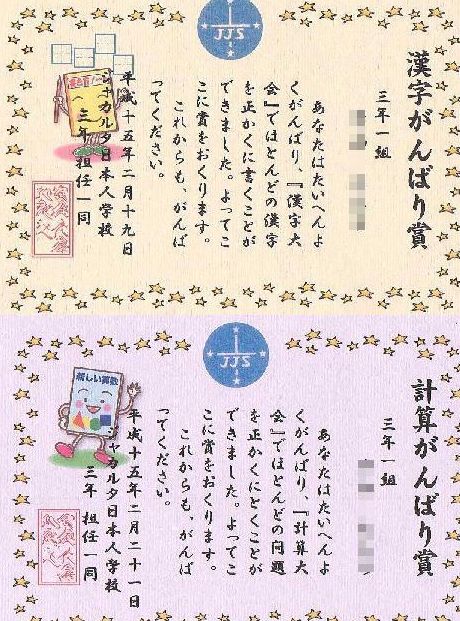 漢字がんばり賞
三年一組
あなたはたいへんよ
くがんばり、『漢字大
会』でほとんどの漢字
を正かくに書くことが
できました。よってこ
こに賞をおくります。
これからも、がんば
ってください。
平成十五年二月十九日
ジャカルタ日本人学校
三年 担任一同
JJS
計算がんばり賞
三年一組
あなたはたいへんよ
くがんばり、『計算大
会』でほとんどの問題
を正かくにとくことが
できました。よってこ
こに賞をおくります。
これからも、がんば
ってください。
平成十五年二月二十一日
ジャカルタ日本人学校
三年 担任一同
JJS
新しい算数